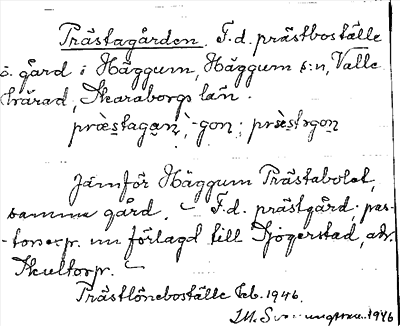 Prästagården. F.d. prästboställe
o. gård i Häggum, Häggum s:n, Valle
härad, Skaraborgs län.
præstagan, -gon; præstrgon
Jämför Häggum Prästabolet,
samma gård. – F.d. prästgård; pas-
-torsexp. nu förlagd till Sjogerstad, adr.
Skultorp. –
Prästlöneboställe Feb. 1946.
1946